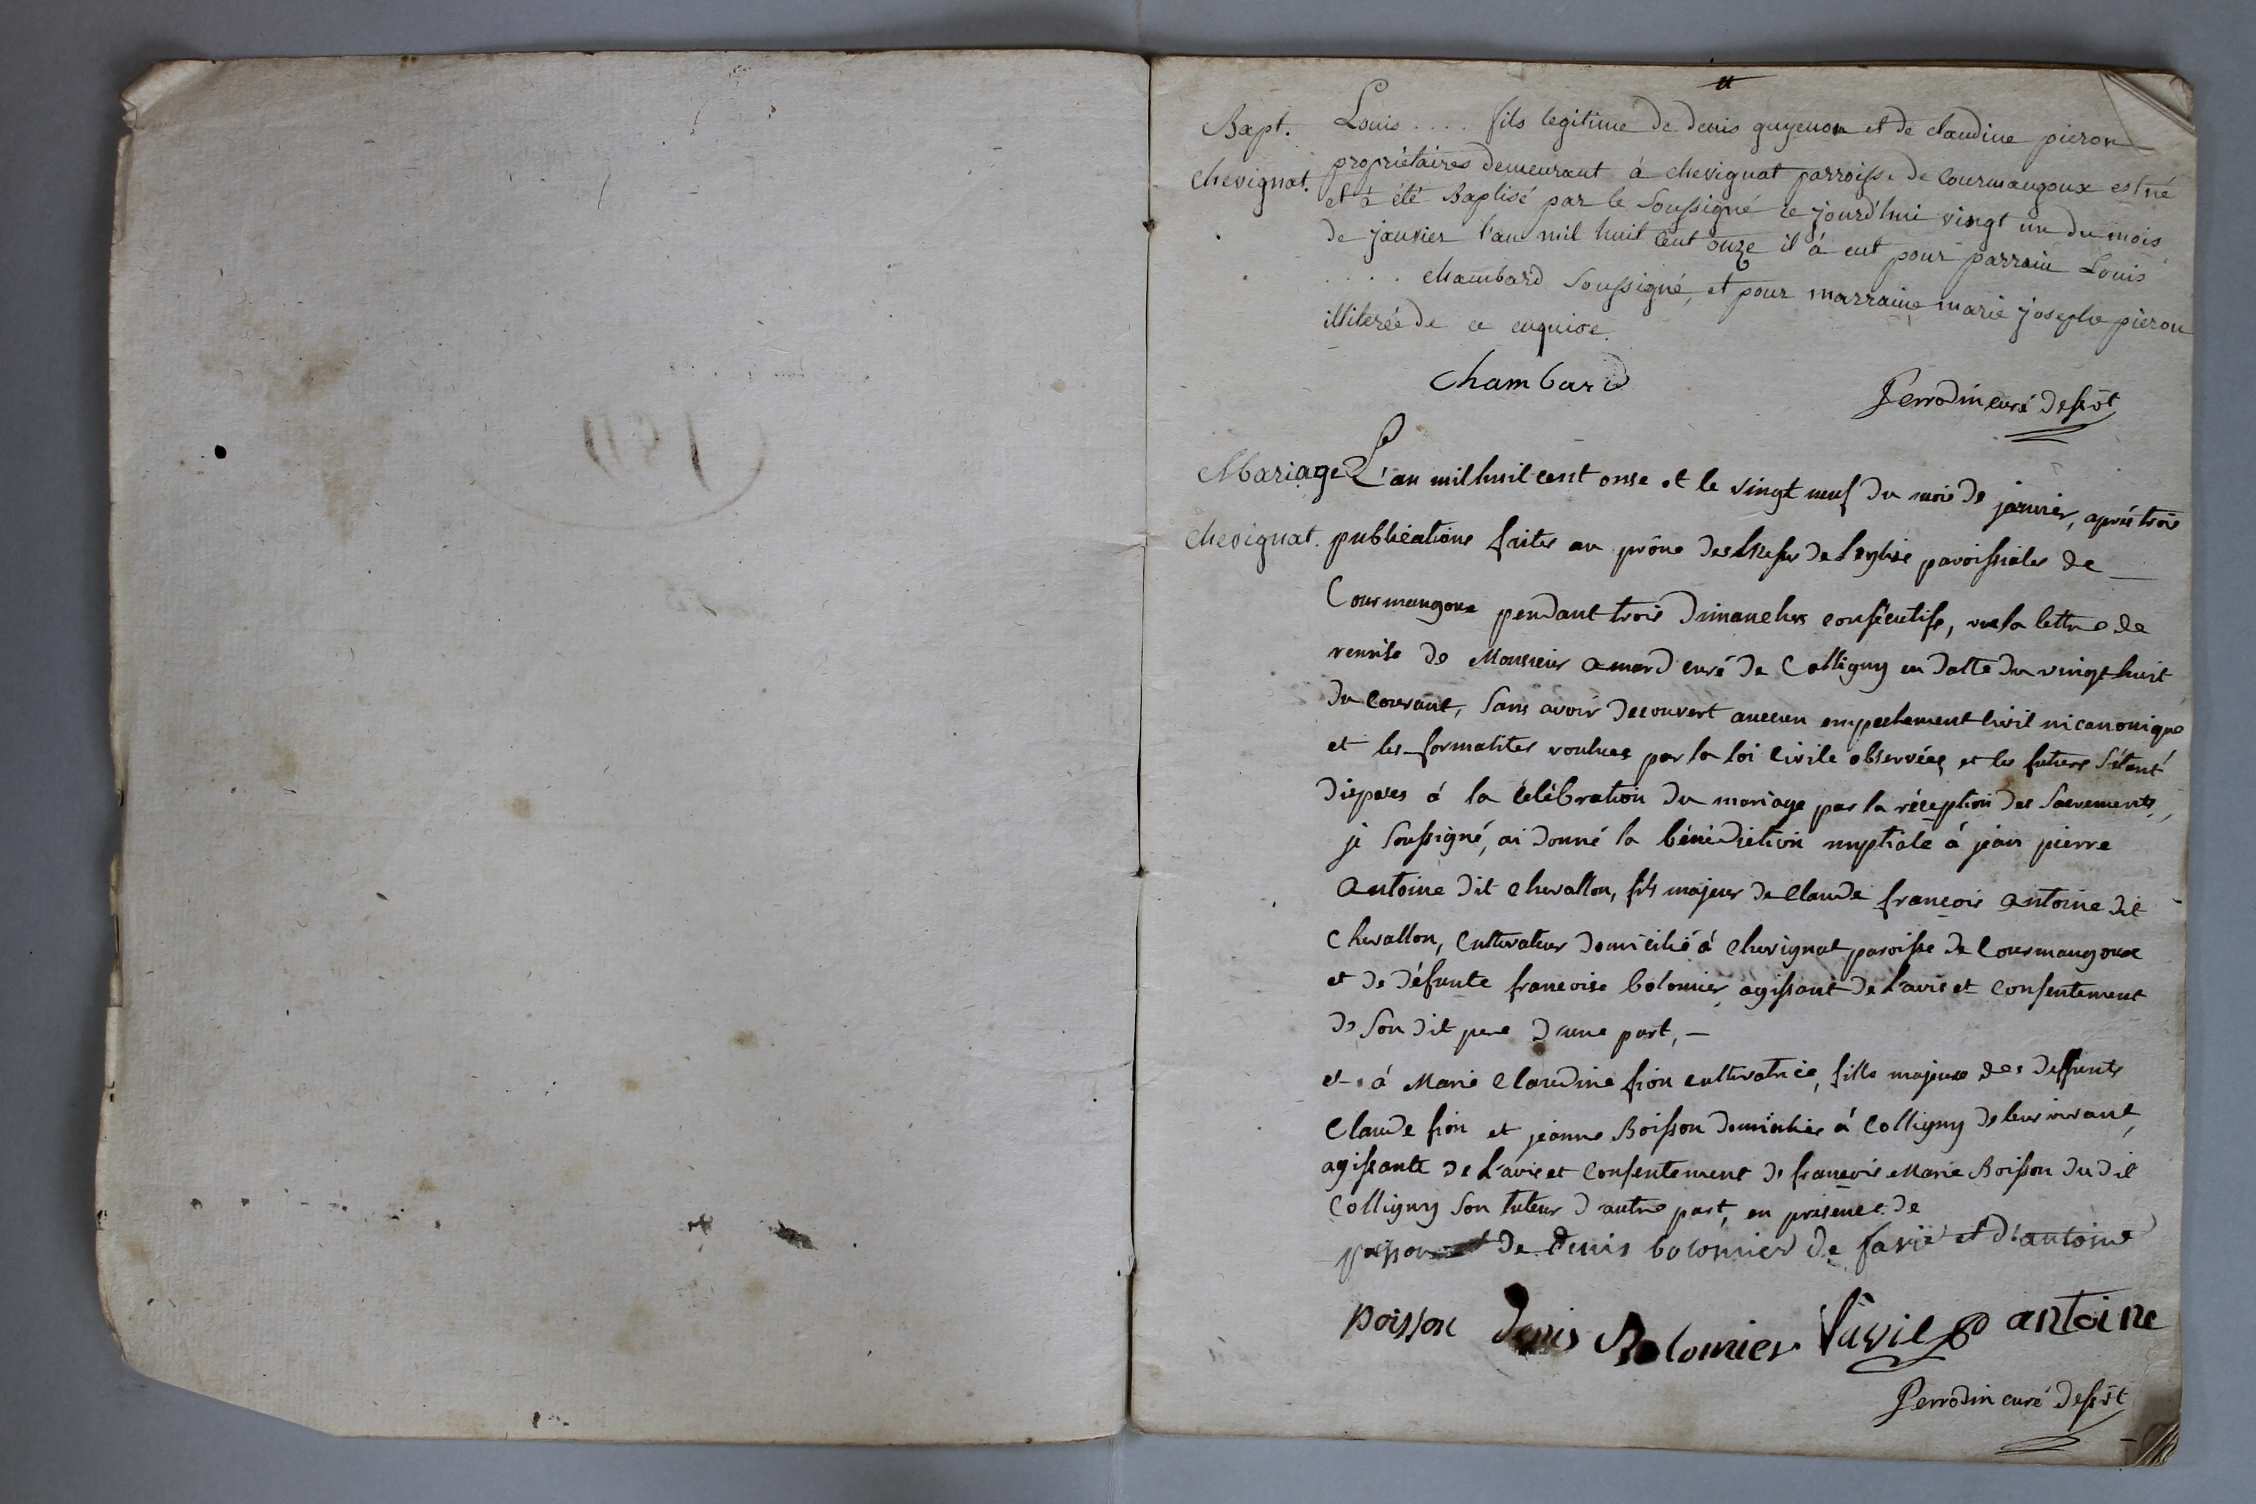 Bapt. Louis .... fils legitime de denis guyenon et de claudine pieron
chevignat. propriétaires demeurant à chevignat parroisse de Courmangoux est né
et à été Baptisé par le Soussigné ce jourd'hui vingt un du mois
de janvier l'an mil huit cent onze il à eut pour parrain Louis
.... chambard Soussigné, et pour marraine marie josephe pieron
illiterée de ce enquise.
Chambard
Perrodin curé dessët
Mariage L'an mil huit cent onse et le vingt neuf du mois de janvier, après trois
chevignat. publications faites au prône des Messes de l'eglise paroissiales de
Courmangoux pendant trois dimanches consécutifs, vue la lettre de
remise de Monsieur amard curé de Colligny en datte du vingt huit
du courant, Sans avoir decouvert aucun empechement Civil ni canonique
et les formalites voulues par la loi Civile observées, et les futurs s'étant
disposés à la Célébration du mariage par la réception des Sacrements,
je Soussigné, ai donné la bénédiction nuptiale à jean pierre
antoine dit Chevallon, fils majeur de Claude françois antoine dit
Chevallon, Cultivateur domicilié à Chevignat paroisse de Courmangoux
et de défunte francoise bolomier, agissant de l'avis et Consentement
de Son dit pere d'une part, —
et à Marie Claudine fion cultivatrice, fille majeure des deffunts
Claude fion et jeanne Boisson domiciliés à Colligny de leur vivant,
agissante de l'avis et Consentement de françois Marie Boisson du dit
Colligny Son tuteur d'autre part, en présence de
de denis bolomier de favié et d'antoine
Boisson denis Bolomier antoine
Perrodin curé dessët